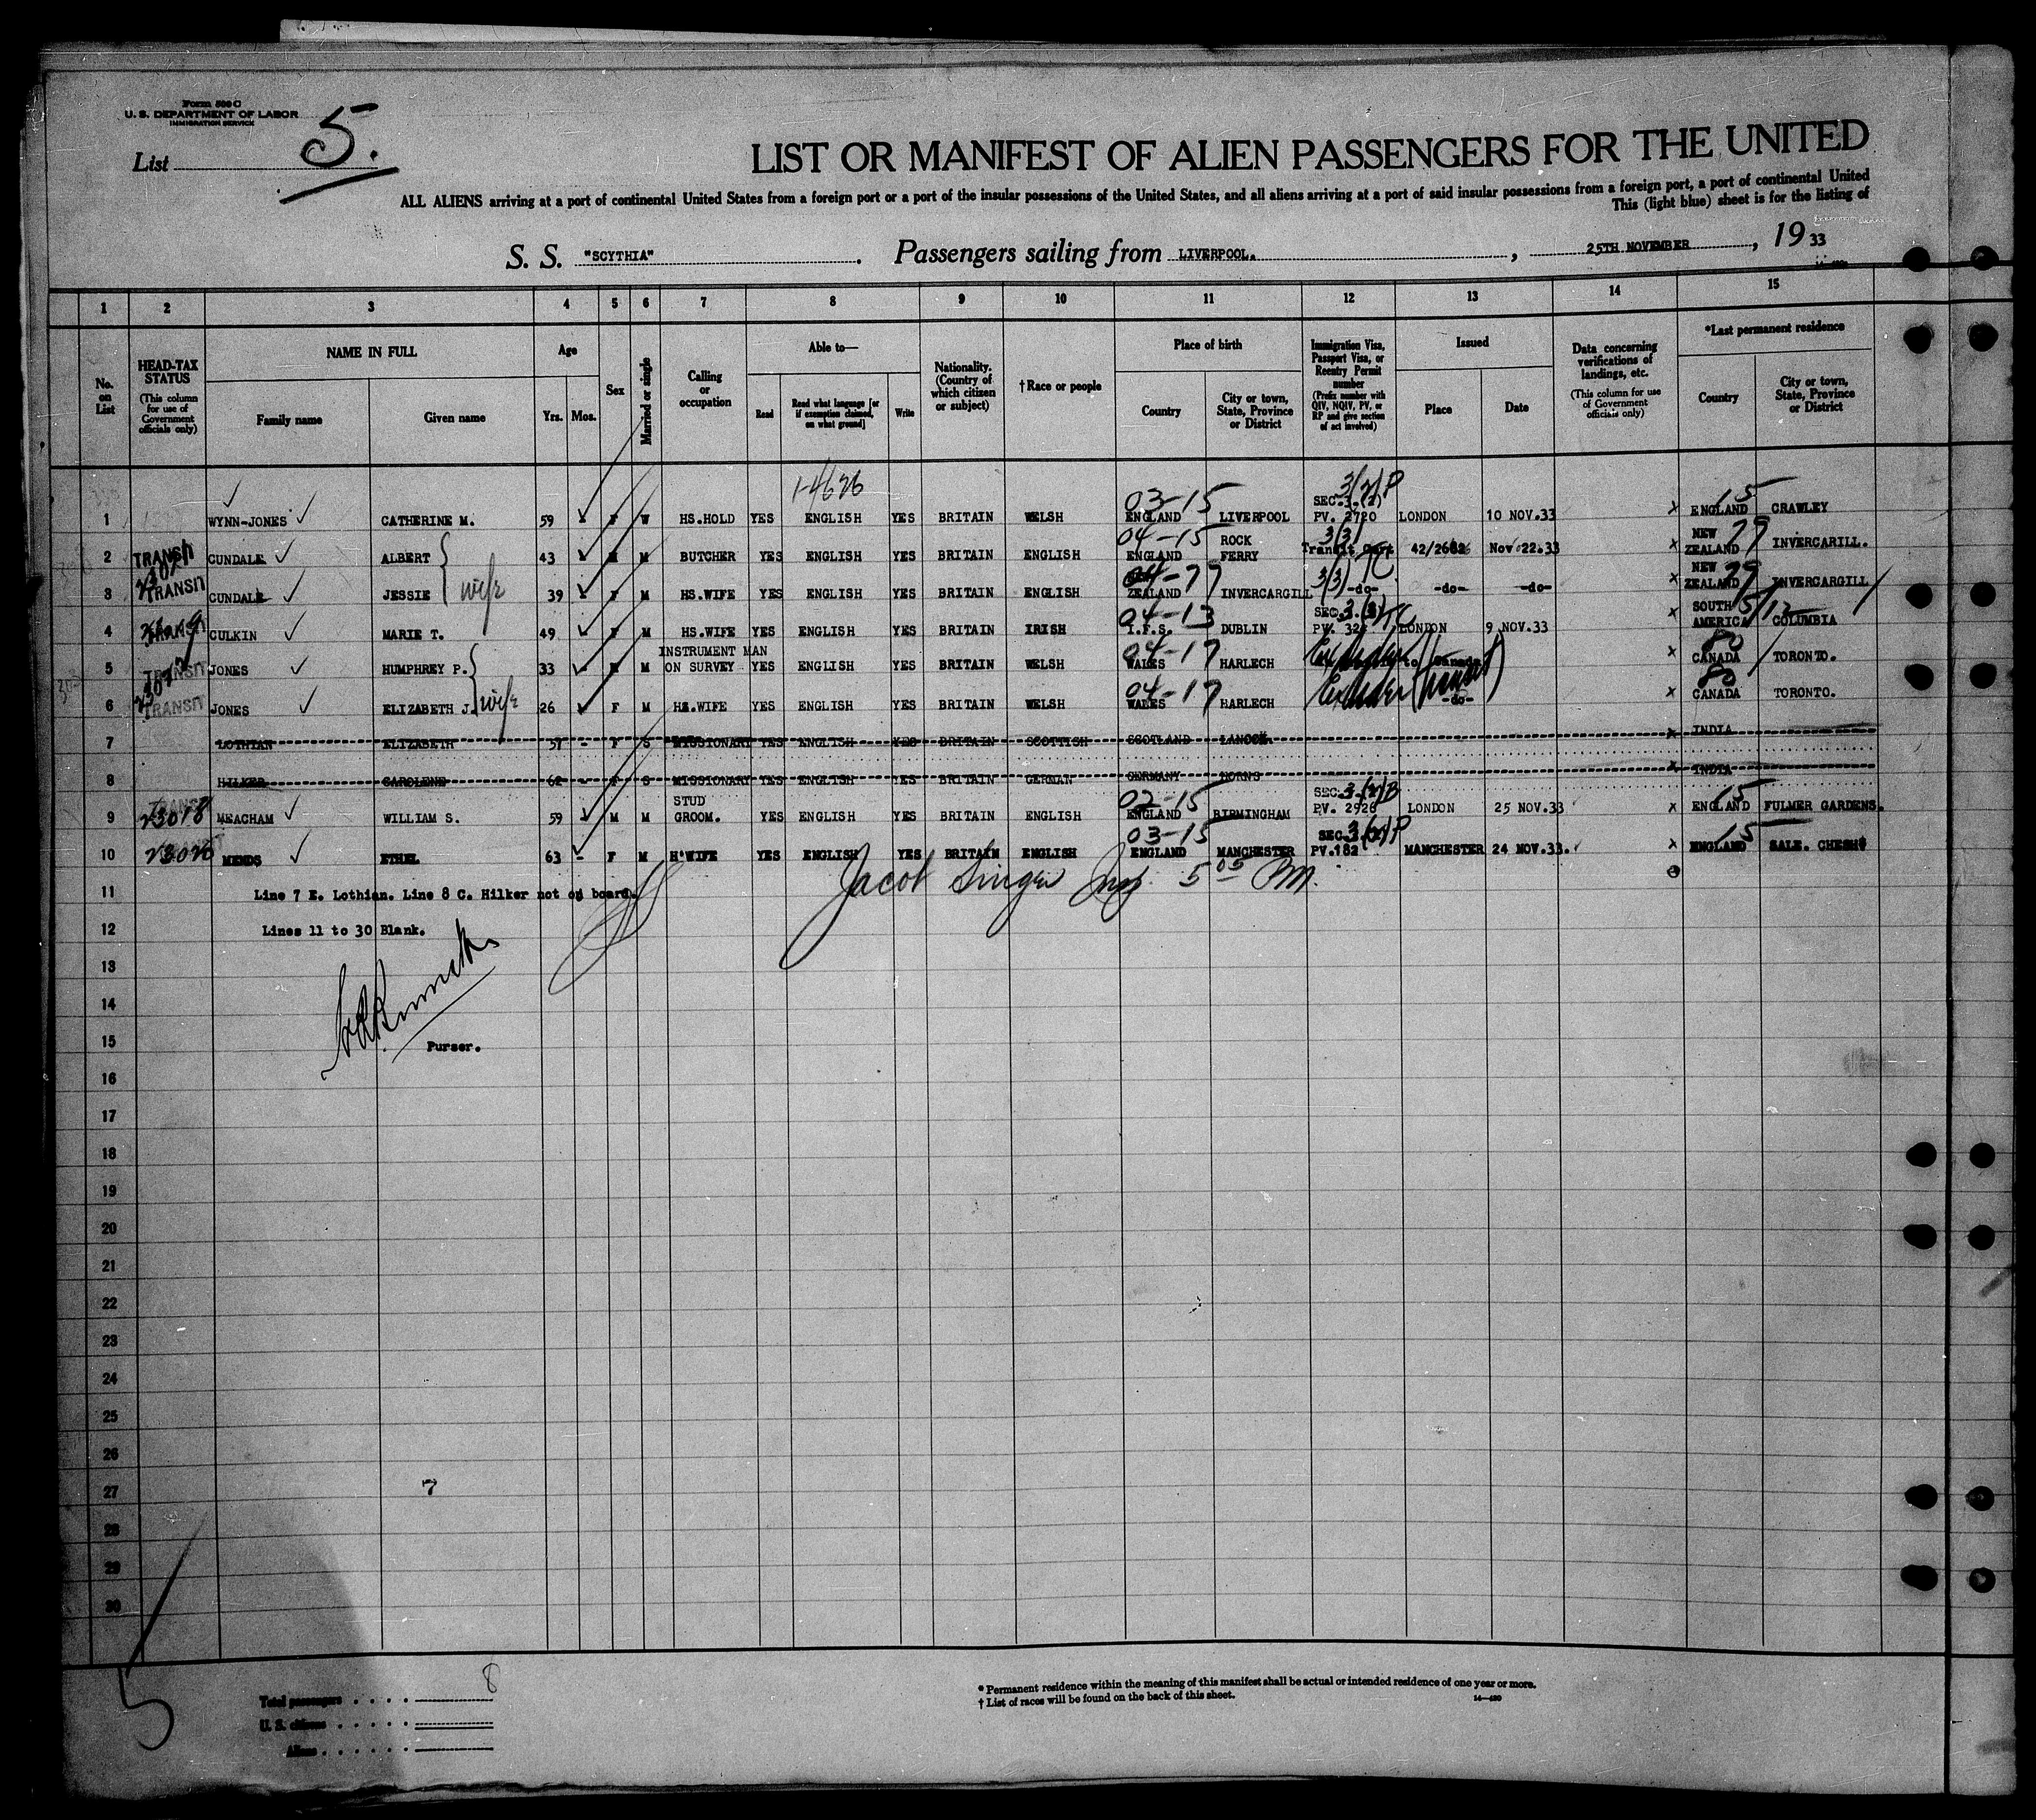 Form 500 C
U. S. DEPARTMENT OF LABOR
IMMIGRATION SERVICE
List 5.
LIST OR MANIFEST OF ALIEN PASSENGERS FOR THE UNITED
ALL ALIENS arriving at a port of continental United States from a foreign port or a port of the insular possessions of the United States, and all aliens arriving at a port of said insular possessions from a foreign port, a port of continental United
This (light blue) sheet is for the listing of
S. S. "SCYTHIA" . Passengers sailing from LIVERPOOL. , 25TH NOVEMBER , 19 33
1 2 3 4 5 6 7 8 9 10 11 12 13 14 15
No. on List
HEAD-TAX STATUS (This column for use of Government officials only)
NAME IN FULL
Family name Given name
Age
Yrs. Mos.
Sex
Married or single
Calling or occupation
Able to—
Read Read what language [or if exemption claimed, on what ground] Write
Nationality. (Country of which citizen or subject)
†Race or people
Place of birth
Country City or town, State, Province or District
Immigration Visa, Passport Visa, or Reentry Permit number (Prefix number with QIV, NQIV, PV, or RP and give section of act involved)
Issued
Place Date
Data concerning verifications of landings, etc. (This column for use of Government officials only)
*Last permanent residence
Country City or town, State, Province or District
1-4626
1 WYNN-JONES CATHERINE M. 59 - F W HS.HOLD YES ENGLISH YES BRITAIN WELSH 03-15 ENGLAND LIVERPOOL SEC.3.(2) 3/2/P PV. 2720 LONDON 10 NOV.33 x ENGLAND 15 CRAWLEY
2 TRANSIT CUNDALE ALBERT 43 M M BUTCHER YES ENGLISH YES BRITAIN ENGLISH 04-15 ENGLAND ROCK FERRY 3/3/ Transit Cert 42/2682 Nov 22.33 x NEW ZEALAND 79 INVERCARILL.
3 TRANSIT CUNDALE JESSIE wife 39 F M HS.WIFE YES ENGLISH YES BRITAIN ENGLISH 04-77 ZEALAND INVERCARGILL 3/3/ -do- -do- -do- x NEW ZEALAND 79 INVERCARGILL
4 TRANSIT CULKIN MARIE T. 49 F M HS.WIFE YES ENGLISH YES BRITAIN IRISH 04-13 I.F.S. DUBLIN SEC.3.(3) PV. LONDON 9 NOV.33 x SOUTH AMERICA COLUMBIA
5 TRANSIT JONES HUMPHREY P. 33 - M M INSTRUMENT MAN ON SURVEY YES ENGLISH YES BRITAIN WELSH 04-17 WALES HARLECH to Canada x CANADA 80 TORONTO.
6 TRANSIT JONES ELIZABETH J. wife 26 F M HS.WIFE YES ENGLISH YES BRITAIN WELSH 04-17 WALES HARLECH -do- x CANADA 80 TORONTO.
7 LOTHIAN ELIZABETH 57 - F S MISSIONARY YES ENGLISH YES BRITAIN SCOTTISH SCOTLAND x INDIA
8 HILKER CAROLENE 62 - F S MISSIONARY YES ENGLISH YES BRITAIN GERMAN GERMANY HORNS x INDIA
9 23018 MEACHAM WILLIAM S. 59 M M STUD GROOM. YES ENGLISH YES BRITAIN ENGLISH 02-15 ENGLAND BIRMINGHAM SEC.3.(2)B PV. 2926 LONDON 25 NOV.33 x ENGLAND 15 FULMER GARDENS.
10 23020 MENDS ETHEL 63 - F M H'WIFE YES ENGLISH YES BRITAIN ENGLISH 03-15 ENGLAND MANCHESTER SEC.3.(2)P PV.182 MANCHESTER 24 NOV.33. x ENGLAND 15 SALE. CHESH
11 Line 7 E. Lothian. Line 8 C. Hilker not on board. Jacob Singer Insp. 5 05 PM.
12 Lines 11 to 30 Blank.
13
14
15 Purser.
16
17
18
19
20
21
22
23
24
25
26
27 7
28
29
30
5
Total passengers . . . . 8
U. S. citizens . . . . .
Aliens . . . . . .
* Permanent residence within the meaning of this manifest shall be actual or intended residence of one year or more.
† List of races will be found on the back of this sheet.
14—480